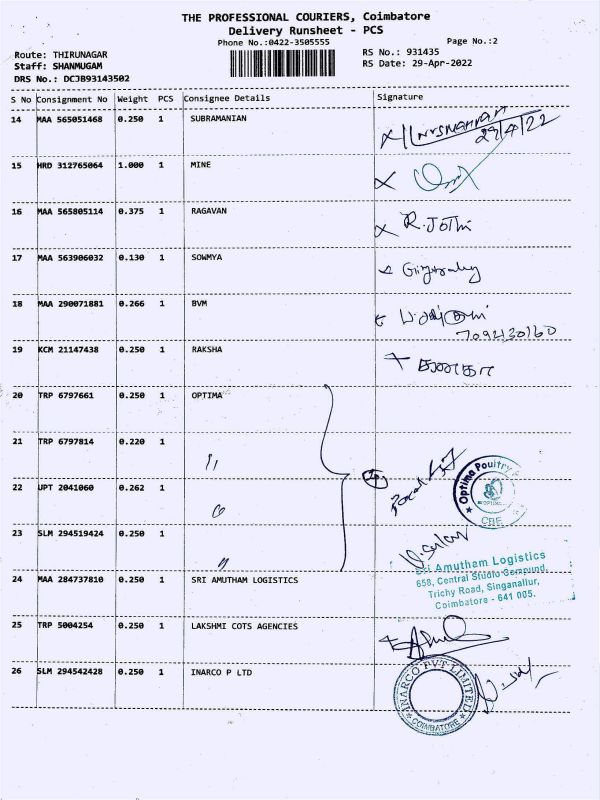 THE PROFESSIONAL COURIERS, Coimbatore
Delivery Runsheet - PCS
Phone No.:0422-3505555
Page No.:2
Route: THIRUNAGAR
RS No.: 931435
Staff: SHANMUGAM
RS Date: 29-Apr-2022
DRS No.: DCJB93143502
S No Consignment No Weight PCS Consignee Details Signature
14 MAA 565051468 0.250 1 SUBRAMANIAN
29/4/22
15 HRD 312765064 1.000 1 MINE
16 MAA 565805114 0.375 1 RAGAVAN
R. Jothi
17 MAA 563906032 0.130 1 SOWMYA
18 MAA 290071881 0.266 1 BVM
7092130160
19 KCM 21147438 0.250 1 RAKSHA
20 TRP 6797661 0.250 1 OPTIMA
21 TRP 6797814 0.220 1 〃
22 JPT 2041060 0.262 1 〃
Optima Poultry
CBE
23 SLM 294519424 0.250 1 〃
Sri Amutham Logistics
658, Central Studio Compund,
Trichy Road, Singanallur,
Coimbatore - 641 005.
24 MAA 284737810 0.250 1 SRI AMUTHAM LOGISTICS
25 TRP 5004254 0.250 1 LAKSHMI COTS AGENCIES
26 SLM 294542428 0.250 1 INARCO P LTD
INARCO PVT LIMITED
COIMBATORE